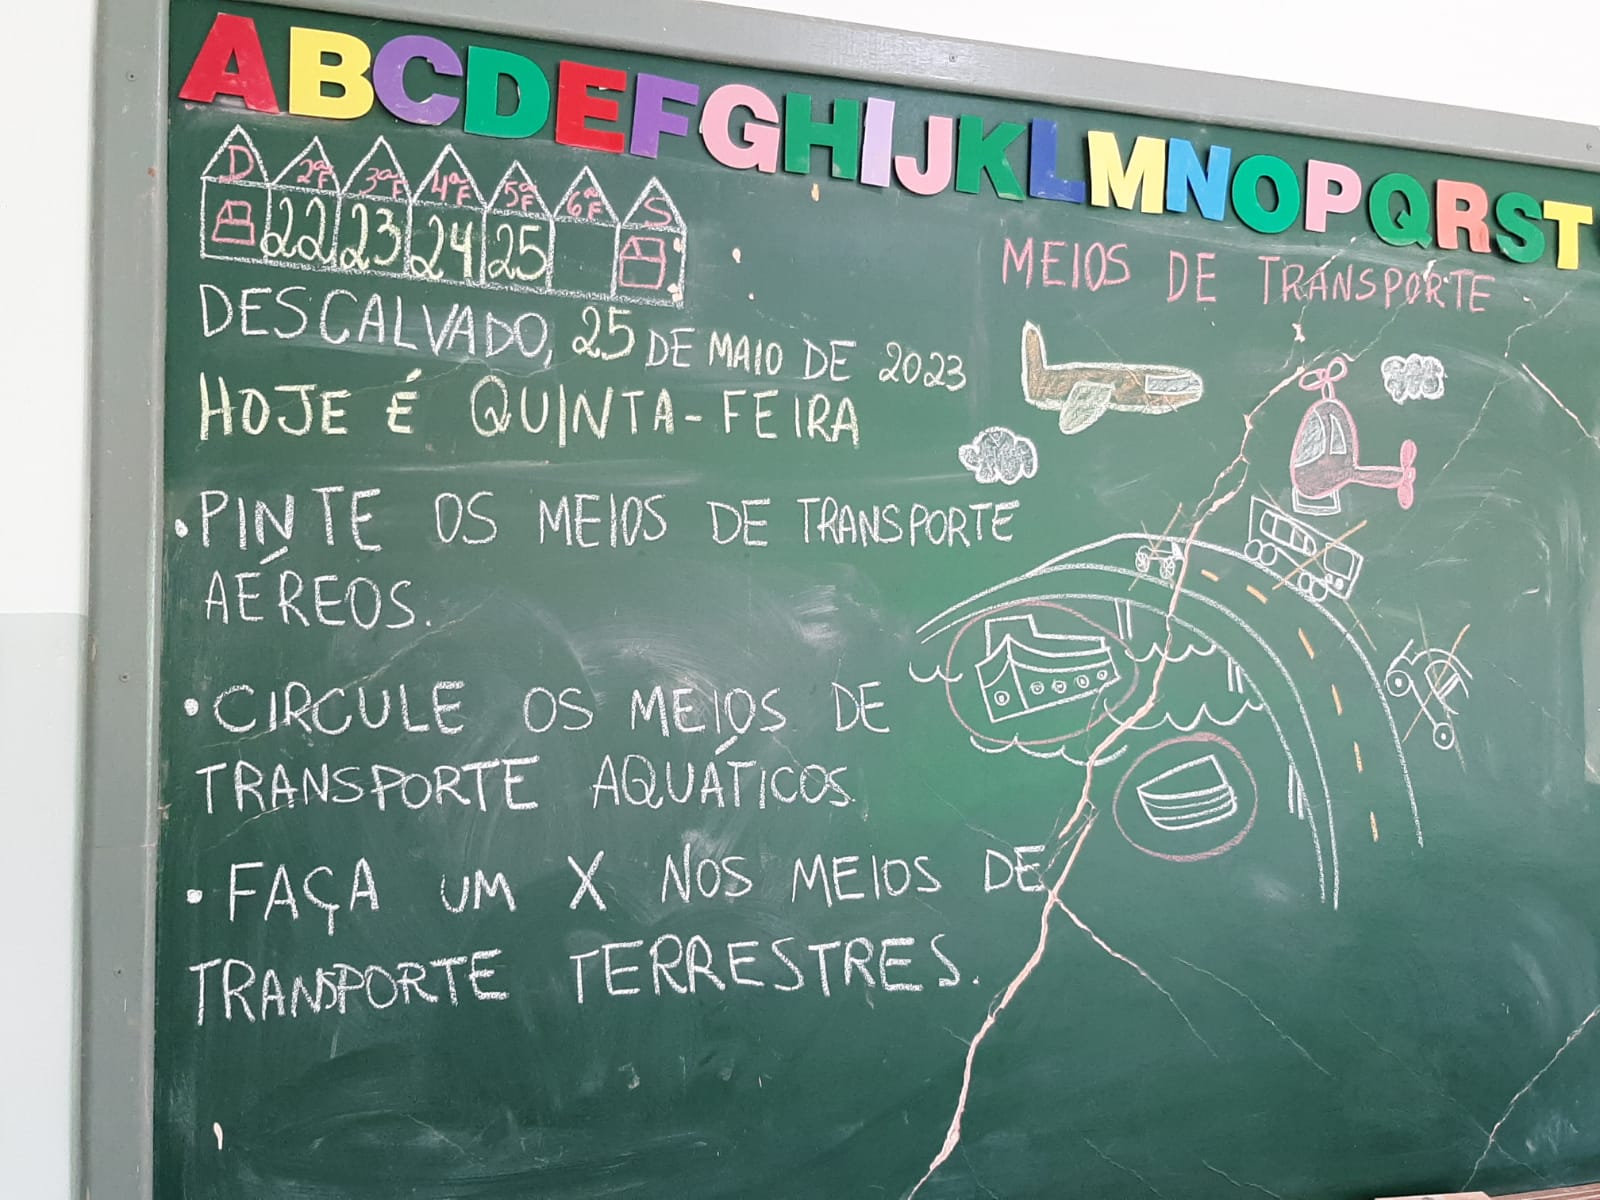 ABCDEFGHIJKLMNOPQRST
D 2ªF 3ªF 4ªF 5ªF 6ªF S
22 23 24 25
DESCALVADO, 25 DE MAIO DE 2023
HOJE É QUINTA-FEIRA
MEIOS DE TRANSPORTE
• PINTE OS MEIOS DE TRANSPORTE
AÉREOS.
• CIRCULE OS MEIOS DE
TRANSPORTE AQUÁTICOS.
• FAÇA UM X NOS MEIOS DE
TRANSPORTE TERRESTRES.